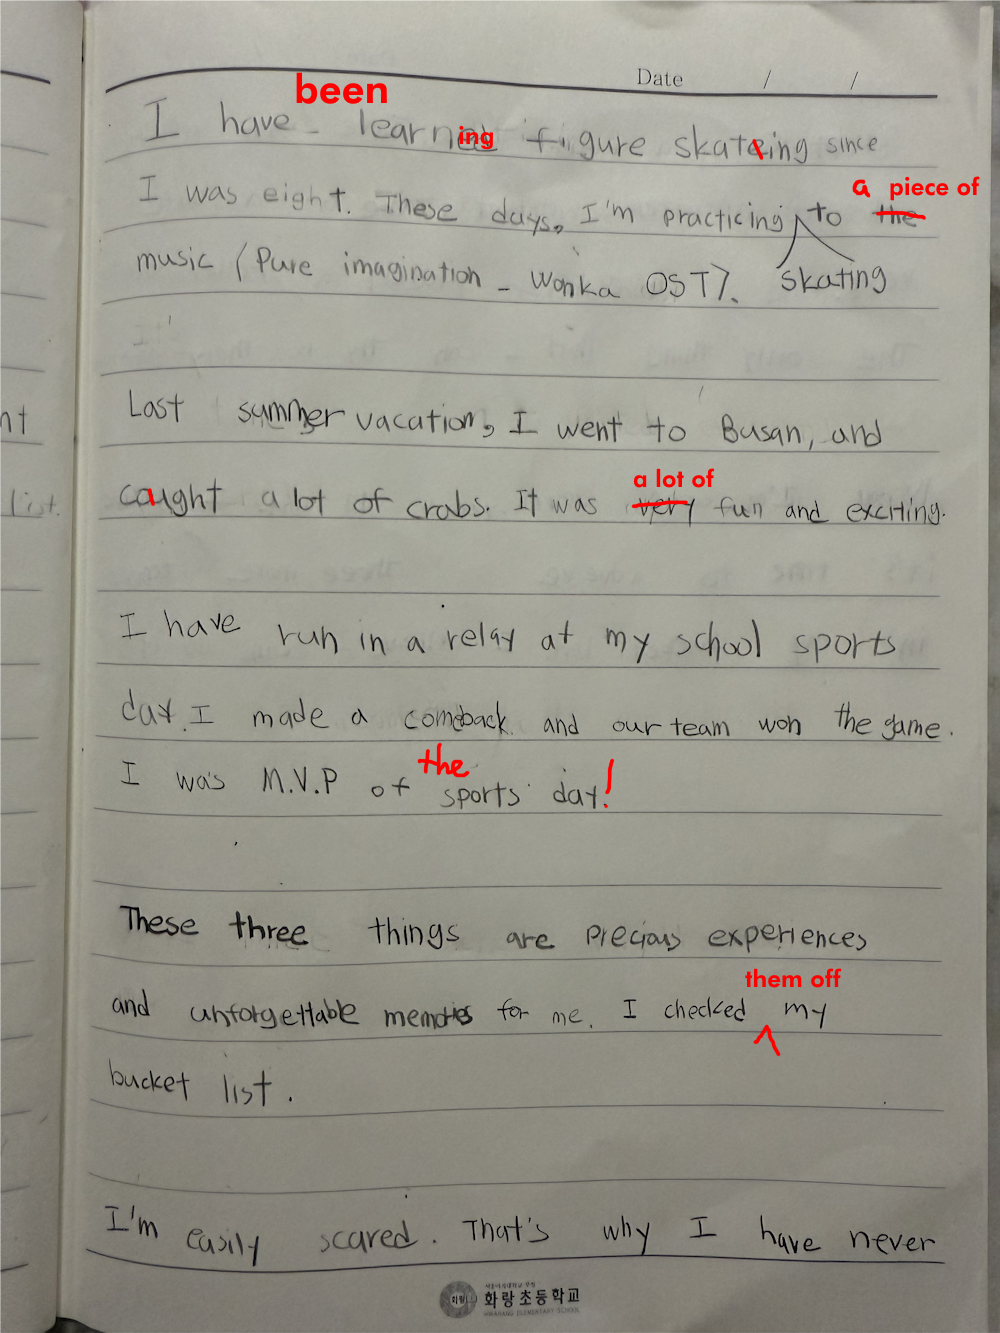 Date / /
been
I have learned ing figure skateing since
a piece of
I was eight. These days, I'm practicing to the
music (Pure imagination - Wonka OST). skating
nt
Last summer vacation, I went to Busan, and
list.
a lot of
caught a lot of crabs. It was very fun and exciting.
I have run in a relay at my school sports
day. I made a comeback and our team won the game.
the
I was M.V.P of sports day!
These three things are precious experiences
them off
and unforgettable memories for me. I checked my
bucket list.
I'm easily scared. That's why I have never
화랑초등학교
HWARANG ELEMENTARY SCHOOL